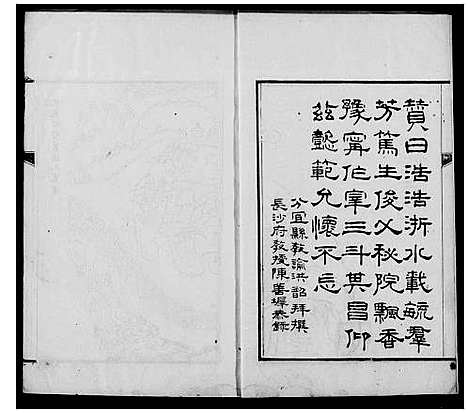 贊曰浩浩浙水載毓羣
芳篤生俊乂秘院飄香
豫甯作宰三斗其昌仰
玆懿範允懷不忘
分宜縣敎諭洪詔拜撰
長沙府敎授陳善墀恭錄